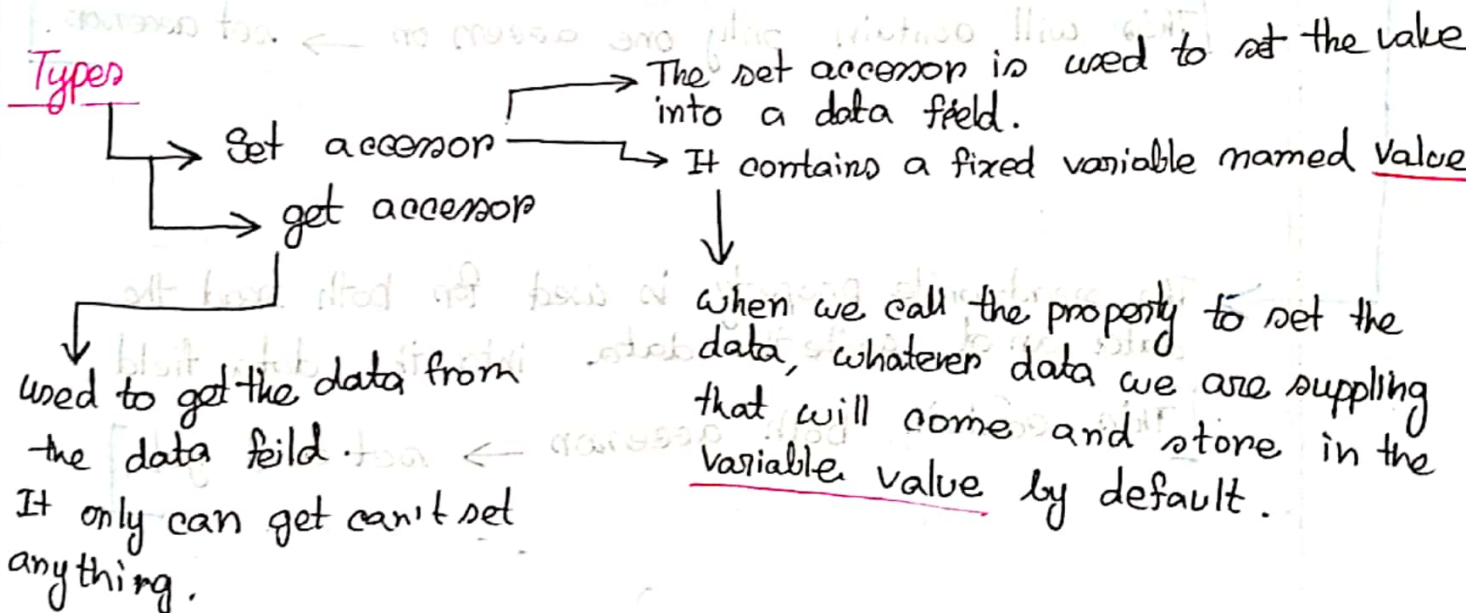 Types
Set accessor
get accessor
The set accessor is used to set the value
into a data field.
It contains a fixed variable named Value
when we call the property to set the
data, whatever data we are suppling
that will come and store in the
variable value by default.
used to get the data from
the data feild.
It only can get can't set
anything.